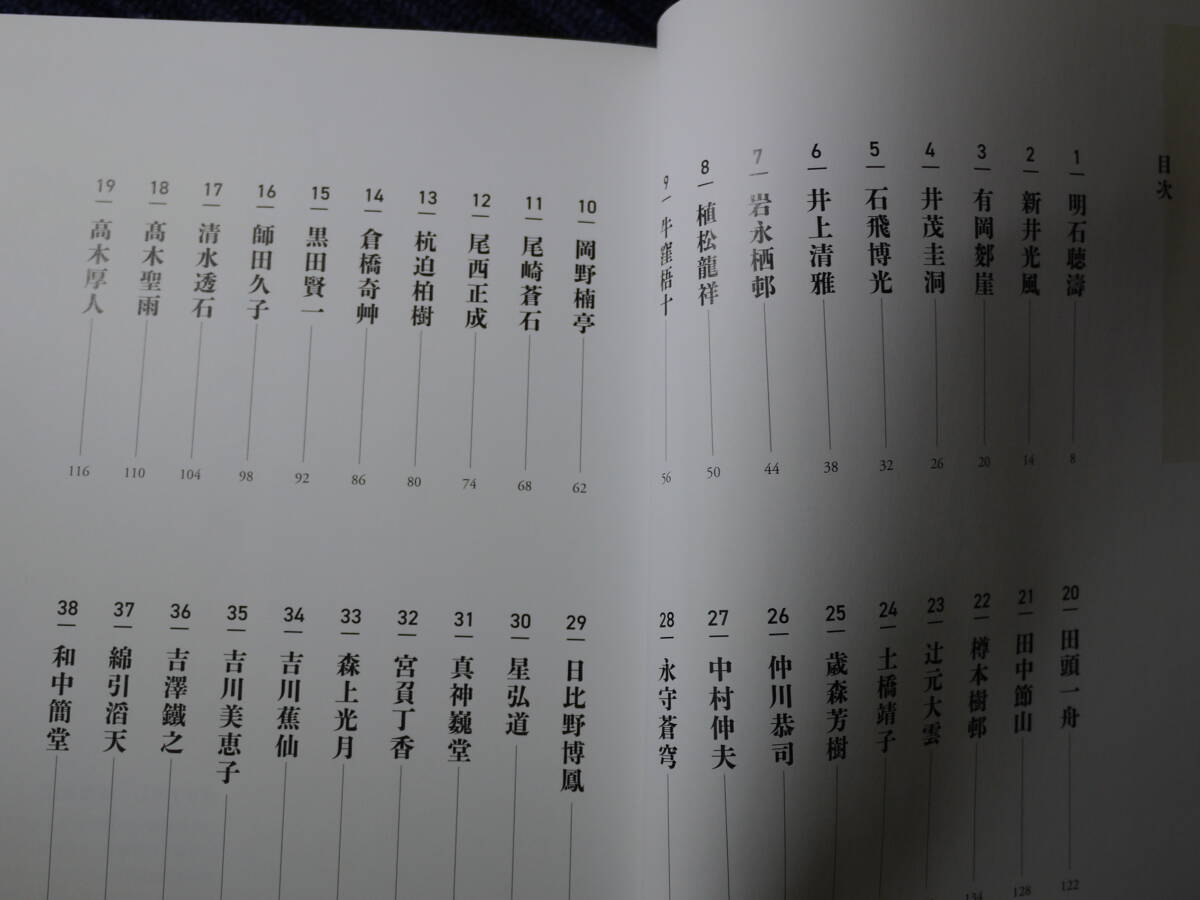 目次
1 明石聴濤 8
2 新井光風 14
3 有岡郄崖 20
4 井茂圭洞 26
5 石飛博光 32
6 井上清雅 38
7 岩永栖邨 44
8 植松龍祥 50
9 牛窪梧十 56
10 岡野楠亭 62
11 尾崎蒼石 68
12 尾西正成 74
13 杭迫柏樹 80
14 倉橋奇艸 86
15 黒田賢一 92
16 師田久子 98
17 清水透石 104
18 髙木聖雨 110
19 高木厚人 116
20 田頭一舟 122
21 田中節山 128
22 樽本樹邨 134
23 辻元大雲
24 土橋靖子
25 歳森芳樹
26 仲川恭司
27 中村伸夫
28 永守蒼穹
29 日比野博鳳
30 星弘道
31 真神巍堂
32 宮負丁香
33 森上光月
34 吉川蕉仙
35 吉川美恵子
36 吉澤鐵之
37 綿引滔天
38 和中簡堂